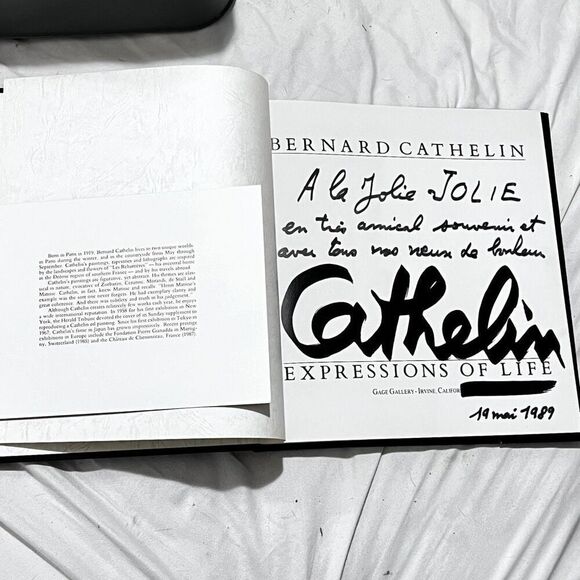 Born in Paris in 1919, Bernard Cathelin lives in two unique worlds
in Paris during the winter, and in the countryside from May through
September. Cathelin's paintings, tapestries and lithographs are inspired
by the landscapes and flowers of
in the Drôme region of southern France — and by his travels abroad.
Cathelin's paintings are figurative, yet abstract. His themes are
in nature, evocative of Zurbaran, Cezanne, Morandi, de Stael and
Matisse. Cathelin, in fact, knew Matisse and recalls "Henri Matisse's
example was the sort one never forgets. He had exemplary clarity and
great coherence. And there was nobility and truth in his judgement."
Although Cathelin creates relatively few works each year, he enjoys
a wide international reputation. In 1958 for his first exhibition in New
York, the Herald Tribune devoted the cover of its Sunday supplement to
reproducing a Cathelin oil painting. Since his first exhibition in Tokyo in
1967, Cathelin's fame in Japan has grown impressively. Recent
exhibitions in Europe include the Fondation Pierre Gianadda in
Switzerland (1985) and the Château de Chenonceau, France (1987).
BERNARD CATHELIN
A la Jolie JOLIE
en très amical souvenir et
avec tous nos vœux de bonheur
Cathelin
EXPRESSIONS OF LIFE
GAGE GALLERY - IRVINE, CALIFOR
19 mai 1989